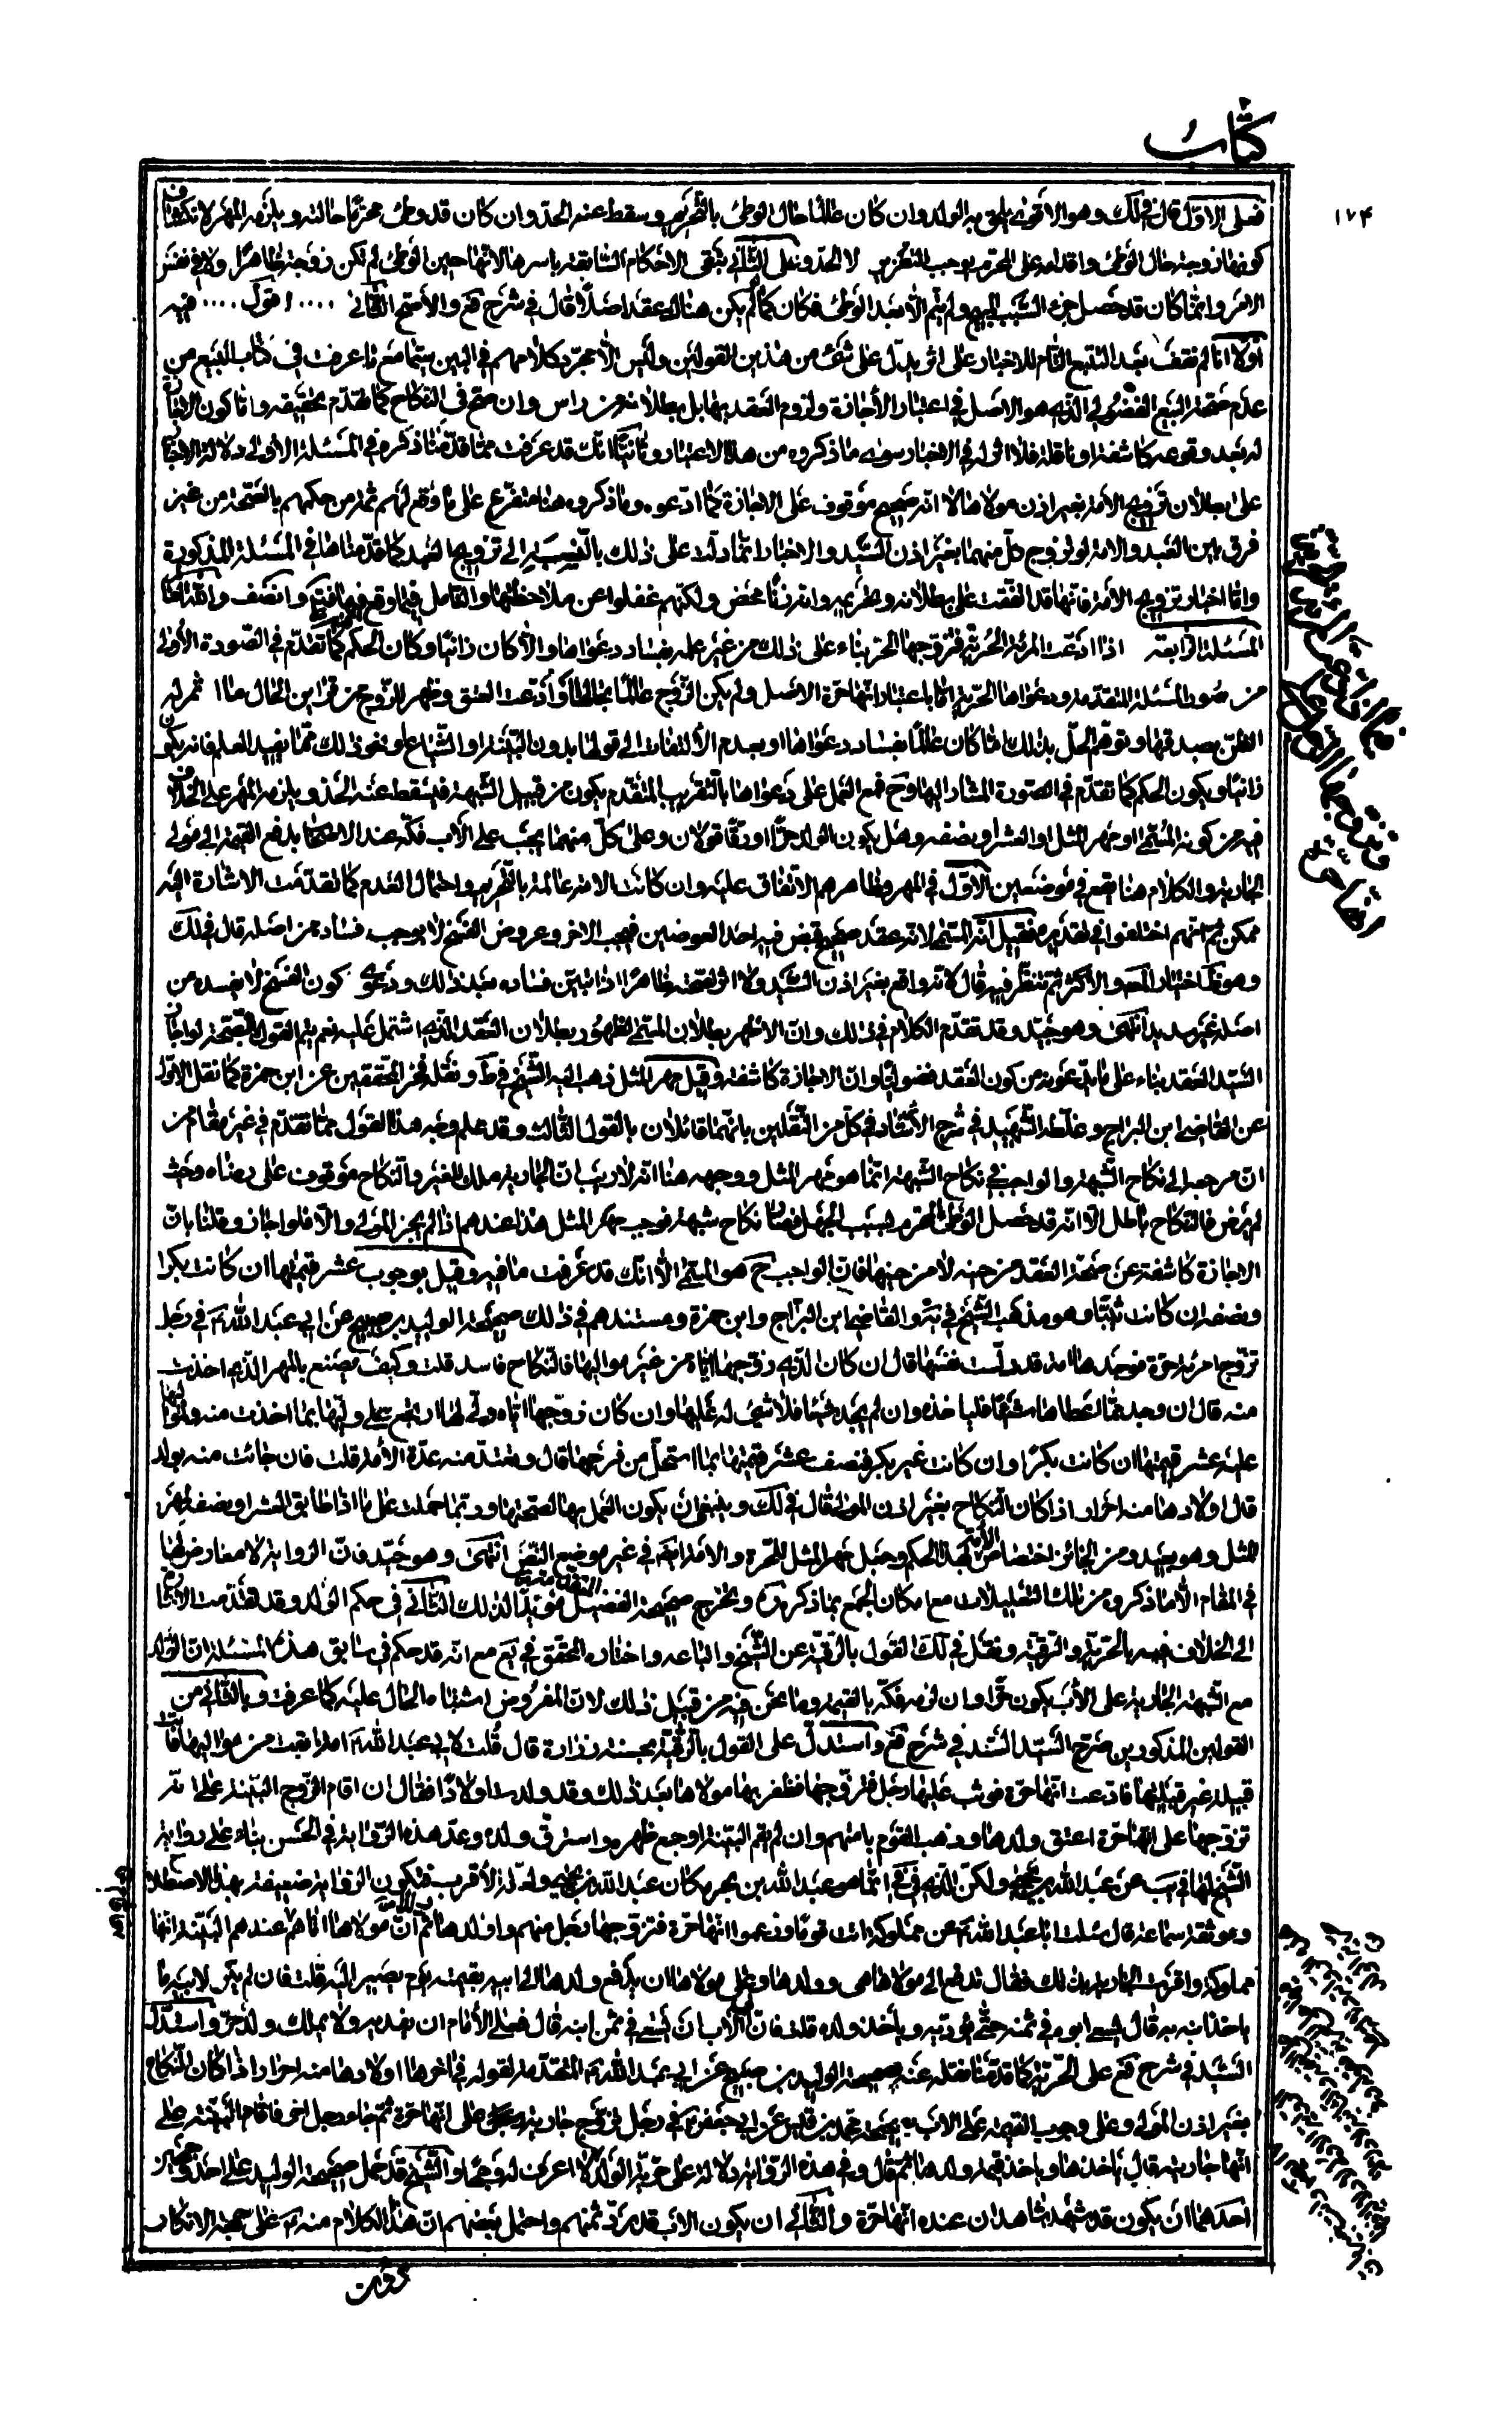 كتاب
١٧۴
فعلى الاوّل قال في لك وهو الاقوى يلحق به الولد وان كان عالمًا حال الوطئ بالتّحريم وسقط عنه الحدّ وان كان قد وطئ محرّمًا حالته ويلزمه المهر لانكشاف
كونها زوجته حال الوطئ واقدامه على المحرّم يوجب التعزير لا الحدّ وعلى الثّاني تبقى الاحكام السّابقة باسرها لانّها حين الوطئ لم تكن زوجته ظاهرًا ولا في نفس
الامر وانّما كان قد حصل جزء السّبب المبيح ولم يتمّ الّا بعد الوطئ فكان كما لم يكن هناك عقد اصلًا قال في شرح فع والاصحّ الثّاني .... اقول .... فيه
اوّلًا انّا لم نقف بعد التتبع التّام للاخبار على اثر يدلّ على شئ من هذين القولين وليس الّا مجرّد كلامهم في البين سيّما مع ما عرفت في كتاب البيع من
عدم صحّة البيع الفضولي الّذي هو الاصل في اعتبار الاجازة ولزوم العقد بها بل بطلانه من راس وان صحّ في النّكاح كما تقدّم تحقيقه وامّا كون الاجازة
له بعد وقوعه كاشفة او ناقلة فلا اثر له في الاخبار سوى ما ذكروه من هذا الاعتبار وثانيًا انّك قد عرفت ممّا قدّمنا ذكره في المسئلة الاولى دلالة الاخبار
على بطلان تزويج الامة بغير اذن مولاها لا انّه صحيح موقوف على الاجازة كما ادّعوه وما ذكروه هنا متفرّع على ما وقع لهم ثمة من حكمهم بالصّحة من غير
فرق بين العبد والامة لو تزوج كلّ منهما بغير اذن السّيّد والاخبار انّما دلّت على ذلك بالنّسبة الى تزويج العبد كما قدّمناها في المسئلة المذكورة
وامّا اخبار تزويج الامة فانّها قد اتّفقت على بطلانه وتحريمه وانّه زنا محض ولكنّهم غفلوا عن ملاحظتها والتامل فيما وقع فيها فتدبّر وانصف والله العالم
المسئلة الرّابعة اذا ادّعت المرئة الحرّيّة فتزوجها الحرّ بناء على ذلك من غير علمه بفساد دعواها والّا كان زانيًا وكان الحكم كما تقدّم في الصّورة الاولى
من صور المسئلة المتقدّمة ودعواها الحرّيّة امّا باعتبار انّها حرّة الاصل ولم يكن الزّوج عالمًا بحالها او ادّعت العتق وظهر للزّوج من قراين الحال ما اثمر له
الظنّ بصدقها وتوهّم الحلّ بذلك امّا كان عالمًا بفساد دعواها او بعدم الالتفات الى قولها بدون البيّنة او الشّياع او نحو ذلك ممّا يفيد العلم فانّه يكون
زانيًا ويكون الحكم كما تقدّم في الصّورة المشار اليها وح فمع العمل على دعواها بالتّقريب المتقدّم يكون من قبيل الشّبهة فيسقط عنه الحدّ ويلزمه المهر على الخلاف
فيه من كونه المسمّى او مهر المثل او العشر او نصفه وهل يكون الولد حرًّا او رقًّا قولان وعلى كلّ منهما يجب على الاب فكّه عند الاصحاب بدفع القيمة الى مولى
الجارية والكلام هنا يقع في موضعين الاوّل في المهر وظاهرهم الاتّفاق عليه وان كانت الامة عالمة بالتّحريم واحتمال العدم كما تقدّمت الاشارة اليه
ممكن ثمّ انّهم اختلفوا في تقديره فقيل انّه المسمّى لانّه عقد صحيح قبض فيه احد العوضين فيجب الاخر وعروض الفسخ لا يوجب فساده من اصله قال في لك
وهو ما اختاره المصنّف والاكثر ثمّ تنظّر فيه قال لانّه واقع بغير اذن السّيّد ولا اثر لصحّته ظاهرًا اذا تبيّن فساده بعد ذلك ودعوى كون الفسخ لا يفسده من
اصله غير سديد انتهى وهو جيّد وقد تقدّم الكلام في ذلك وانّ الاظهر بطلان المسمّى لظهور بطلان العقد الّذي اشتمل عليه نعم يتمّ القول بالصّحة لو اجاز
السّيّد العقد بناء على ما يدّعونه من كون العقد فضوليًا وانّ الاجازة كاشفة وقيل مهر المثل ذهب اليه الشّيخ في ط ونقله فخر المحققين عن ابن حمزة كما نقل الاوّل
عن القاضي ابن البراج وغلّطه الشّهيد في شرح الارشاد في كلّ من النّقلين بانّهما قائلان بالقول الثّالث وقد علم وجه هذا القول ممّا تقدّم في غير مقام من
انّ مرجعه الى نكاح الشّبهة والواجب في نكاح الشّبهة انّما هو مهر المثل ووجهه هنا انّه لا ريب انّ الجارية ملك للغير والنّكاح موقوف على رضاه وحيث
لم يرض فالنّكاح باطل الّا انّه قد حصل الوطئ المحترم بسبب الجهل فصار نكاح شبهة فوجب مهر المثل هذا عندهم اذا لم يجز المولى والّا فلو اجاز وقلنا بانّ
الاجازة كاشفة عن صحّة العقد من حينه لا من حينها فانّ الواجب ح هو المسمّى الّا انّك قد عرفت ما فيه وقيل بوجوب عشر قيمتها ان كانت بكرا
ونصفه ان كانت ثيّبًا وهو مذهب الشّيخ في يه والقاضي ابن البرّاج وابن حمزة ومستندهم في ذلك صحيحة الوليد بن صبيح عن ابي عبد الله ع في رجل
تزوّج امرئة حرّة فوجدها امة قد دلّست نفسها قال ان كان الّذي زوّجها ايّاه من غير مواليها فالنّكاح فاسد قلت وكيف يصنع بالمهر الّذي اخذت
منه قال ان وجد ممّا اعطاها شيئًا فلياخذه وان لم يجد شيئًا فلا شئ له عليها وان كان زوّجها ايّاه وليّ لها ارتجع على وليّها بما اخذت منه ولمواليها
عليه عشر قيمتها ان كانت بكرًا وان كانت غير بكر فنصف عشر قيمتها بما استحلّ من فرجها قال وتعتدّ منه عدّة الامة قلت فان جائت منه بولد
قال اولادها منه احرار اذا كان النّكاح بغير اذن المولى قال في لك وينبغي ان يكون العمل بها لصحّتها وربّما حملت على ما اذا طابق العشر او نصفه مهر
المثل وهو بعيد ومن الجائز اختصاص الامة بهذا الحكم وحمل مهر المثل للحرّة والامة في غير موضع النّصّ انتهى وهو جيّد فانّ الرّواية لا معارض لها
في المقام الّا ما ذكروه من تلك التّعليلات مع امكان الجمع بما ذكره وتخرج صحيحة الفضيل مؤيّدًا لذلك الثّاني في حكم الولد وقد تقدّمت الاشارة
الى الخلاف فيه بالحرّيّة والرّقيّة ونقل في لك القول بالرّقيّة عن الشّيخ واتباعه واختاره المحقّق في يع مع انّه قد حكم في سابق هذه المسئلة انّ الولد
مع الشّبهة الجارية على الاب يكون حرًّا وان لزمه فكّه بالقيمة وما نحن فيه من قبيل ذلك لانّ المفروض اشتباه الحال عليه كما عرفت وبالثّاني من
القولين المذكورين صرّح السّيّد السّند في شرح فع واستدلّ على القول بالرّقيّة بحسنة زرارة قال قلت لابي عبد الله ع امة ابقت من مواليها فاتت
قبيلة غير قبيلتها فادّعت انّها حرّة فوثب عليها رجل فتزوّجها فظفر بها مولاها بعد ذلك وقد ولدت اولادًا فقال ان اقام الزّوج البيّنة على انّه
تزوّجها على انّها حرّة اعتق ولدها وذهب القوم بامتهم وان لم يقم البيّنة اوجع ظهره واسترق ولده وعدّ هذه الرّواية في الحسن بناء على رواية
الشّيخ لها في يب عن عبد الله بن يحيى ولكن الّذي في في انّما هو عبد الله بن بحر مكان عبد الله بن يحيى ولعلّه الاقرب فتكون الرّواية ضعيفة بهذا الاصطلاح
وموثقة سماعة قال سئلت ابا عبد الله ع عن مملوكة اتت قومًا وزعموا انّها حرّة فتزوّجها رجل منهم واولدها ثمّ انّ مولاها اتاهم فاقام عندهم البيّنة انّها
مملوكة واقرّت الجارية بذلك فقال تدفع الى مولاها هي وولدها وعلى مولاها ان يدفع ولدها الى ابيه بقيمته يوم يصير اليه قلت فان لم يكن لابيه ما
ياخذ ابنه به قال يسعى ابوه في ثمنه حتّى يؤدّيه وياخذ ولده قلت فان ابى الاب ان يسعى في ثمن ابنه قال فعلى الامام ان يفديه ولا يملك ولد حرّ واستدلّ
السّيّد في شرح فع على الحرّيّة كما قدّمنا نقله عنه بصحيحة الوليد بن صبيح عن ابي عبد الله ع المتقدّمة لقوله في اخرها اولادها منه احرار اذا كان النّكاح
بغير اذن المولى وعلى وجوب القيمة على الاب بصحيحة محمّد بن قيس عن ابي جعفر ع في رجل تزوّج جارية على انّها حرّة ثمّ جاء رجل اخر فاقام البيّنة على
انّها جاريته قال ياخذها وياخذ قيمة ولدها ثمّ قال وفي هذه الرّواية دلالة على حرّيّة الولد لا اعرف لردّها والشّيخ قد حمل صحيحة الوليد على احد وجهين
احدهما ان يكون قد شهد شاهدان عنده انّها حرّة والثّاني ان يكون الاب قد ردّ ثمنهم واحتمل بعضهم انّ هذا الكلام منه ع على جهة الانكار